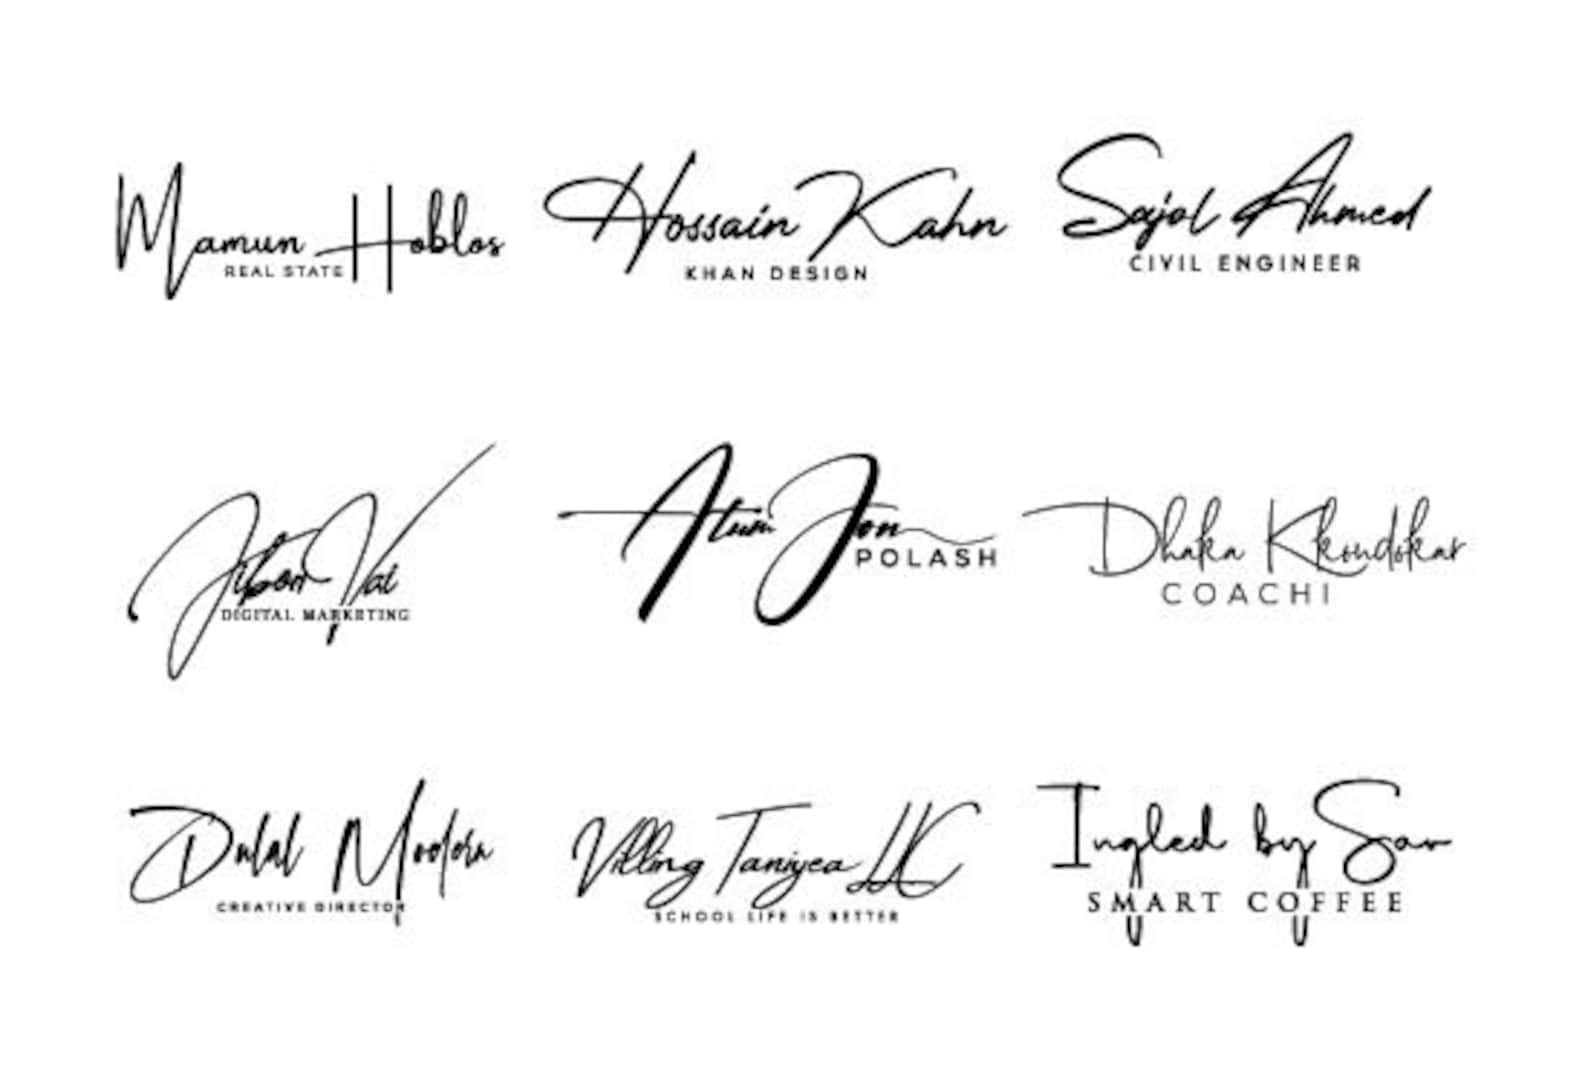 Mamun Hoblos
REAL STATE
Hossain Kahn
KHAN DESIGN
Sajol Ahmed
CIVIL ENGINEER
Jibon Vai
DIGITAL MARKETING
Atum Jon
POLASH
Dhaka Kkondokar
COACHI
Dulal Modern
CREATIVE DIRECTOR
Villing Taniyea LLC
SCHOOL LIFE IS BETTER
Ingled by Sav
SMART COFFEE